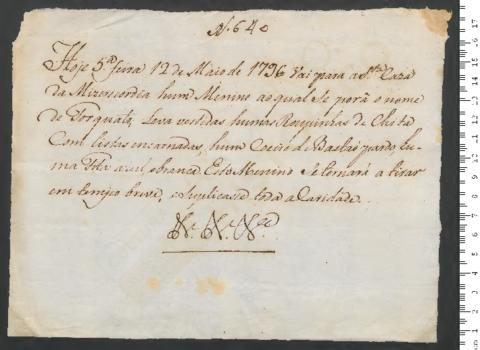 N. 640
Hoje 5.ª feira 12 de Maio de 1796 Vai para a S.ta Caza
da Mizericordia hum Menino ao qual se porá o nome
de Torquato, Leva vestidas humas Roupinhas de Chita
Com listas encarnadas, hum Coeiro de Baetaõ pardo, hu-
ma fita azul, e branca Este Menino se tornará a tirar
em tempo breve, e Suplicasse toda a Caridade.